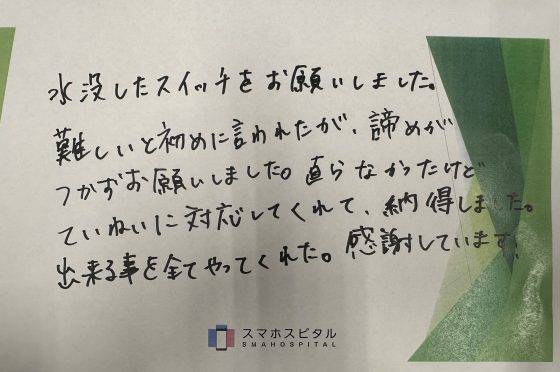 水没したスイッチをお願いしました。
難しいと初めに言われたが、諦めが
つかずお願いしました。直らなかったけど
ていねいに対応してくれて、納得しました。
出来る事を全てやってくれた。感謝しています。
スマホスピタル
SMAHOSPITAL